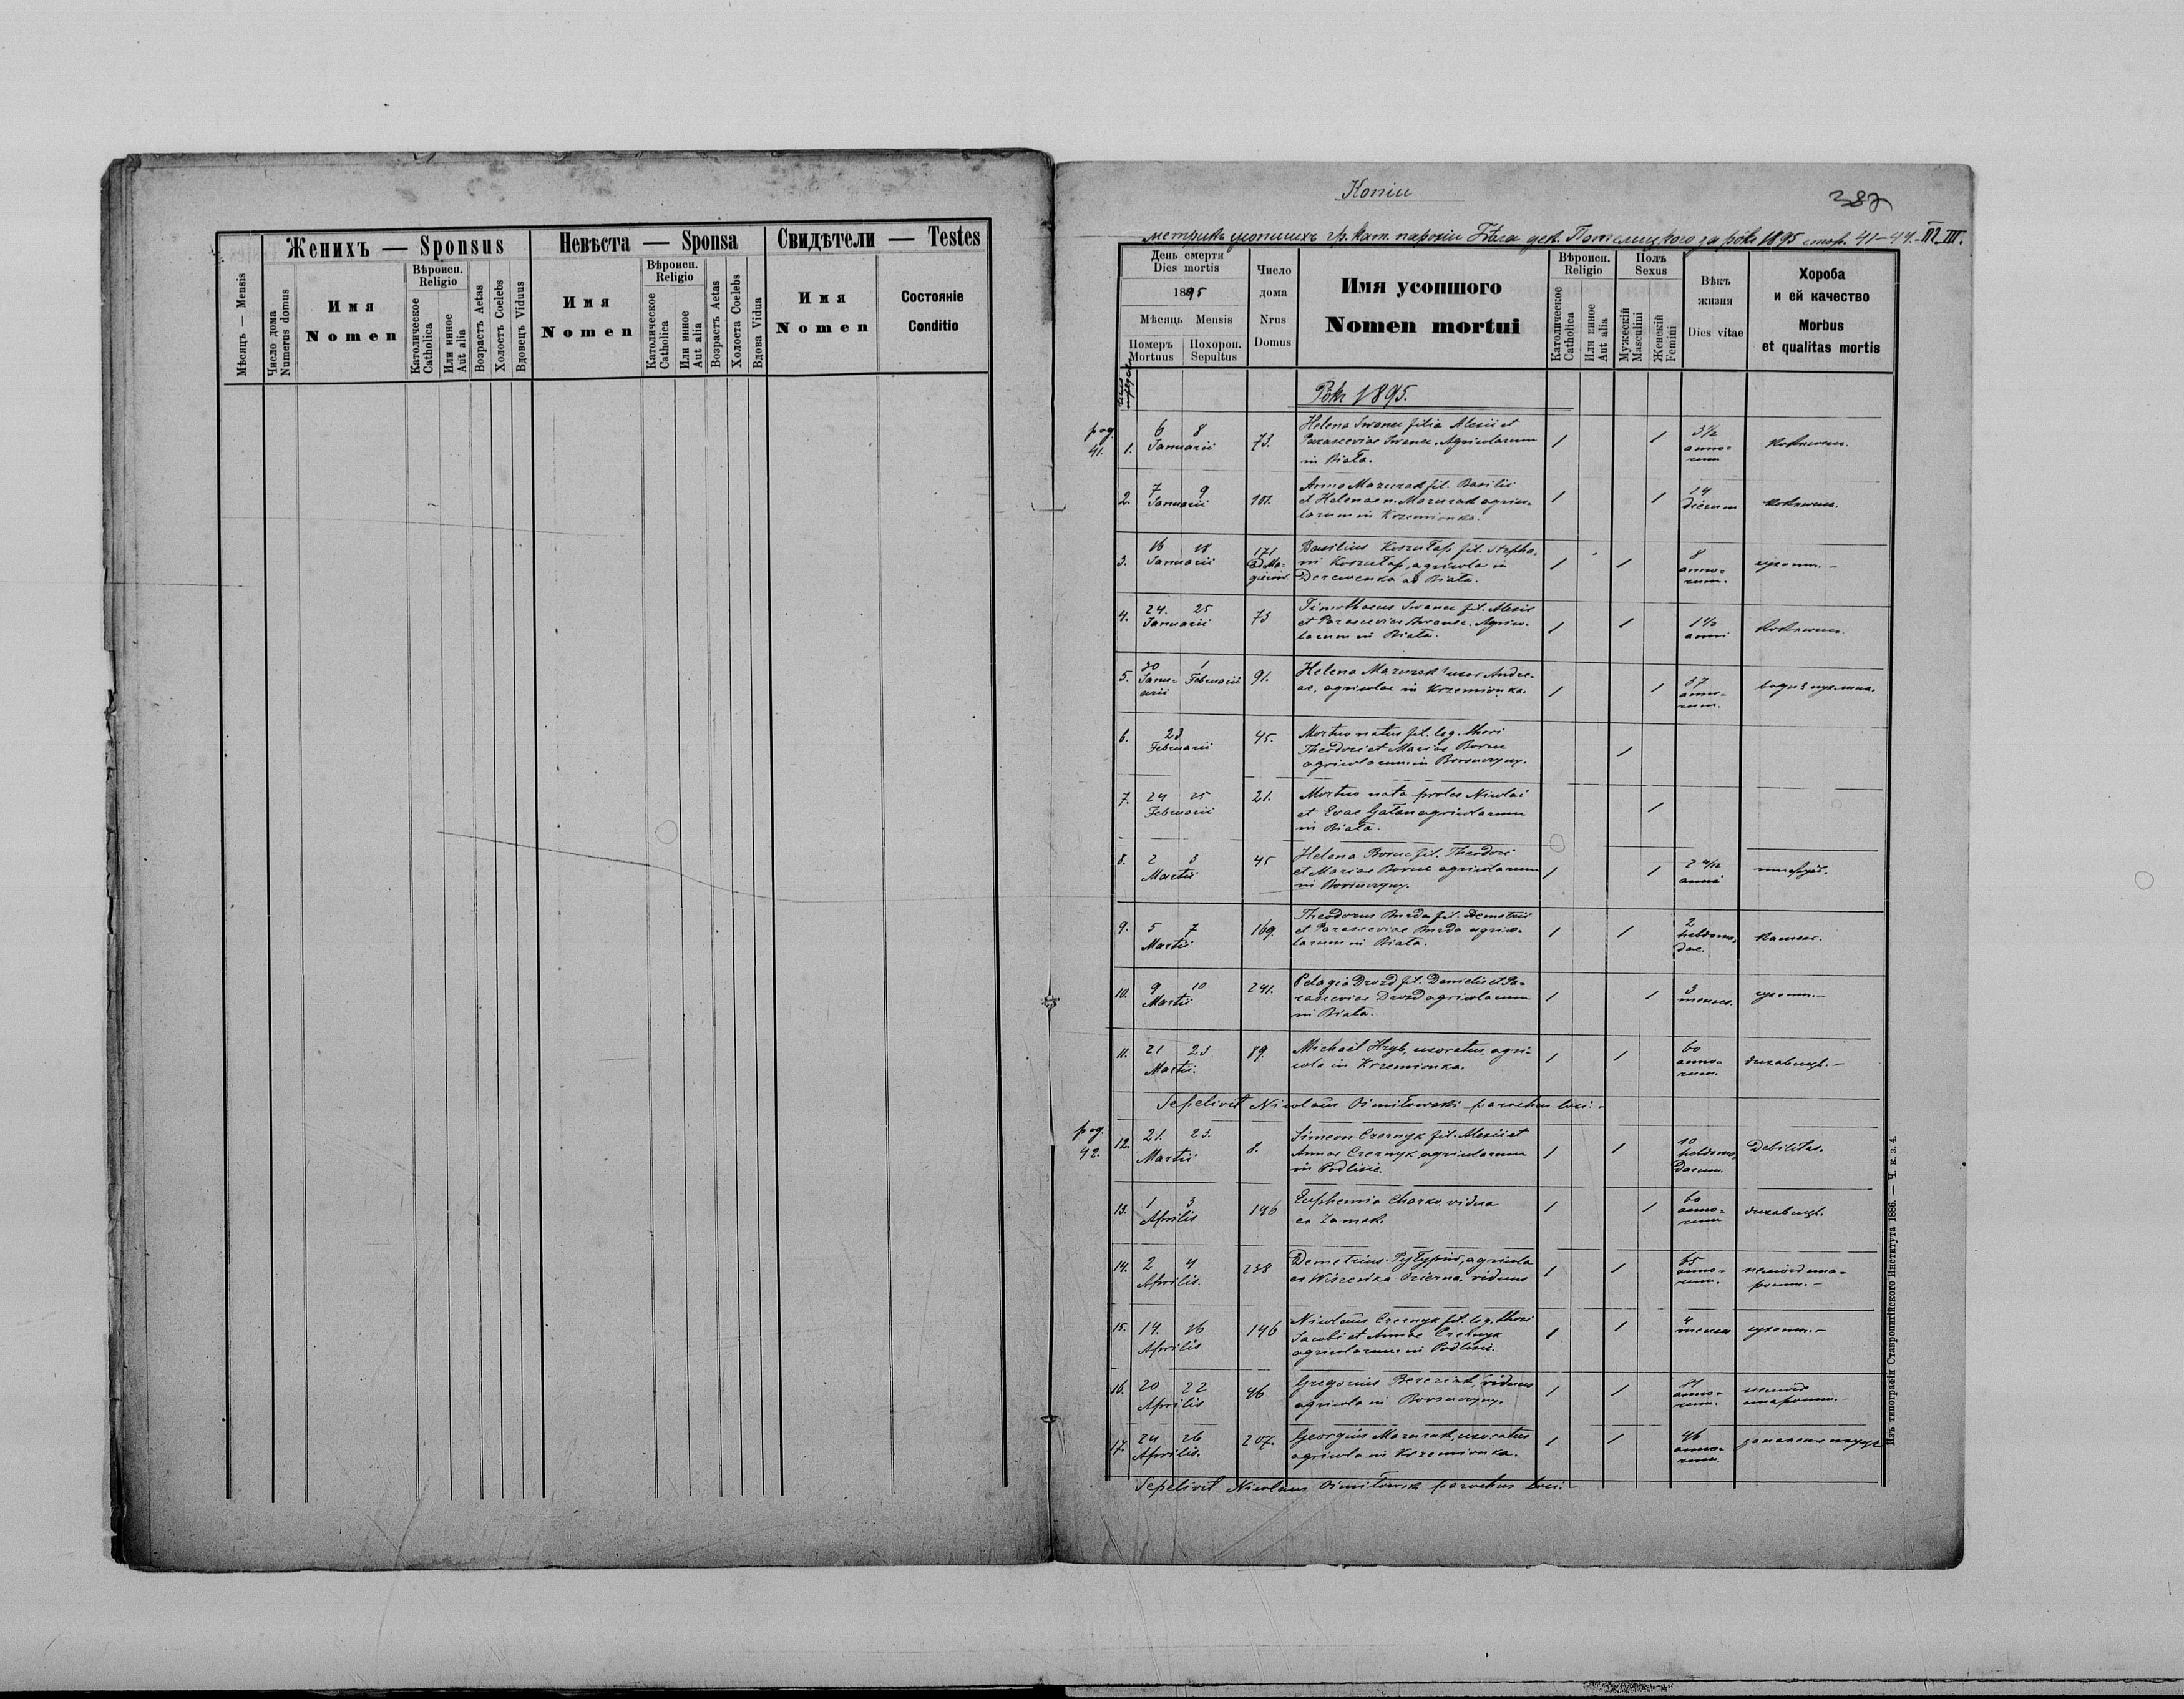 Женихъ — Sponsus
Невѣста — Sponsa
Свидѣтели — Testes
Мѣсяцъ — Mensis
Число дома
Numerus domus
Имя
Nomen
Вѣроисп.
Religio
Католическое
Catholica
Или инное
Aut alia
Возрастъ Aetas
Холостъ Coelebs
Вдовецъ Viduus
Имя
Nomen
Вѣроисп.
Religio
Католическое
Catholica
Или инное
Aut alia
Возрастъ Aetas
Холоста Coelebs
Вдова Vidua
Имя
Nomen
Состоянiе
Conditio
Копіи
387
метрикъ усопшихъ гр. кат. парохіи Бѣла дек. Потелицкого за рôкъ 1895 стор. 41-44.
День смерти
Dies mortis
1895
Мѣсяць Mensis
Померъ
Mortuus
Похорон.
Sepultus
Число
дома
Nrus
Domus
Имя усопшого
Nomen mortui
Вѣроисп.
Religio
Католическое
Catholica
Или инное
Aut alia
Полъ
Sexus
Мужескій
Masculini
Женскій
Femini
Вѣкъ
жизни
Dies vitae
Хороба
и ей качество
Morbus
et qualitas mortis
Рôкъ 1895.
pag. 41.
1. 6 8 Januarii 73. Helena Iwanec filia Alexii et
Parasceviae Iwanec. Agricolarum
in Biała. 1 1 3 1/2 annorum коклюшъ.
2. 7 9 Januarii 101. Anna Mazurak fil. Basilii
et Helenae n. Mazurak agricolarum
in Krzemionka. 1 1 14 dierum коклюшъ.
3. 16 18 Januarii 171 Basilius Koszułap fil. Stephani
Koszułap, agricola in
Derewenka ad Biała. 1 1 8 annorum. сухоты.-
4. 24. 25 Januarii 73 Timothaeus Iwanec fil. Alexii
et Parasceviae Iwanec. Agricolarum
in Biała. 1 1 1 1/2 anni коклюшъ.
5. 30 Januarii 1 Februarii 91. Helena Mazurek uxor Andreae,
agricolae in Krzemionka. 1 1 37 annorum.
6. 23 Februarii 45. Mortuo natus fil. leg. thori
Theodori et Mariae Borue
agricolarum in Borsuczyny. 1
7. 24 25 Februarii 21. Mortuo nata proles Nicolai
et Evae Gałan agricolarum
in Biała. 1
8. 2 3 Martii 45 Helena Borue fil. Theodori
et Mariae Borue agricolarum
in Borsuczyny. 1 1 2 4/12 anni
9. 5 7 Martii 169. Theodorus Burda fil. Demetrii
et Parasceviae Burda agricolarum
in Biała. 1 1 2 hebdomadae. кашель.
10. 9 10 Martii 241. Pelagia Drozd fil. Danielis et Parasceviae
Drozd agricolarum
in Biała. 1 1 3 menses. сухоты.-
11. 21 23 Martii. 89. Michael Hryb, uxoratus, agricola
in Krzemionka. 1 1 60 annorum. дихавиця.-
Sepelivit Nicolaus Dimitowski parochus loci.-
pag. 42.
12. 21. 23. Martii 8. Simeon Czernyk fil. Alexii et
Annae Czernyk agricolarum
in Podlisie. 1 1 10 hebdomadarum. Debilitas.
13. 1 3 Aprilis 146 Euphemia Charko vidua
ex Zamek. 1 1 60 annorum дихавиця.
14. 2 4 Aprilis. 238 Demetrius Pyłypiw, agricola
ex Wiszenka Ozierna. viduus 1 1 65 annorum.
15. 14. 16 Aprilis 146 Nicolaus Czernyk fil. leg. thori
Jacobi et Annae Czernyk
agricolarum in Podlisie. 1 1 4 menses сухоты.-
16. 20 22 Aprilis 46 Gregorius Bereziak, viduus
agricola in Borsuczyny. 1 1 annorum.
17. 24 26 Aprilis. 207. Georgius Mazurak, uxoratus
agricola in Krzemionka. 1 1 46 annorum.
Sepelivit Nicolaus Dimitowski parochus loci.-
Изъ типографіи Ставропигійского Института 1886. — Ч. к. з. 4.